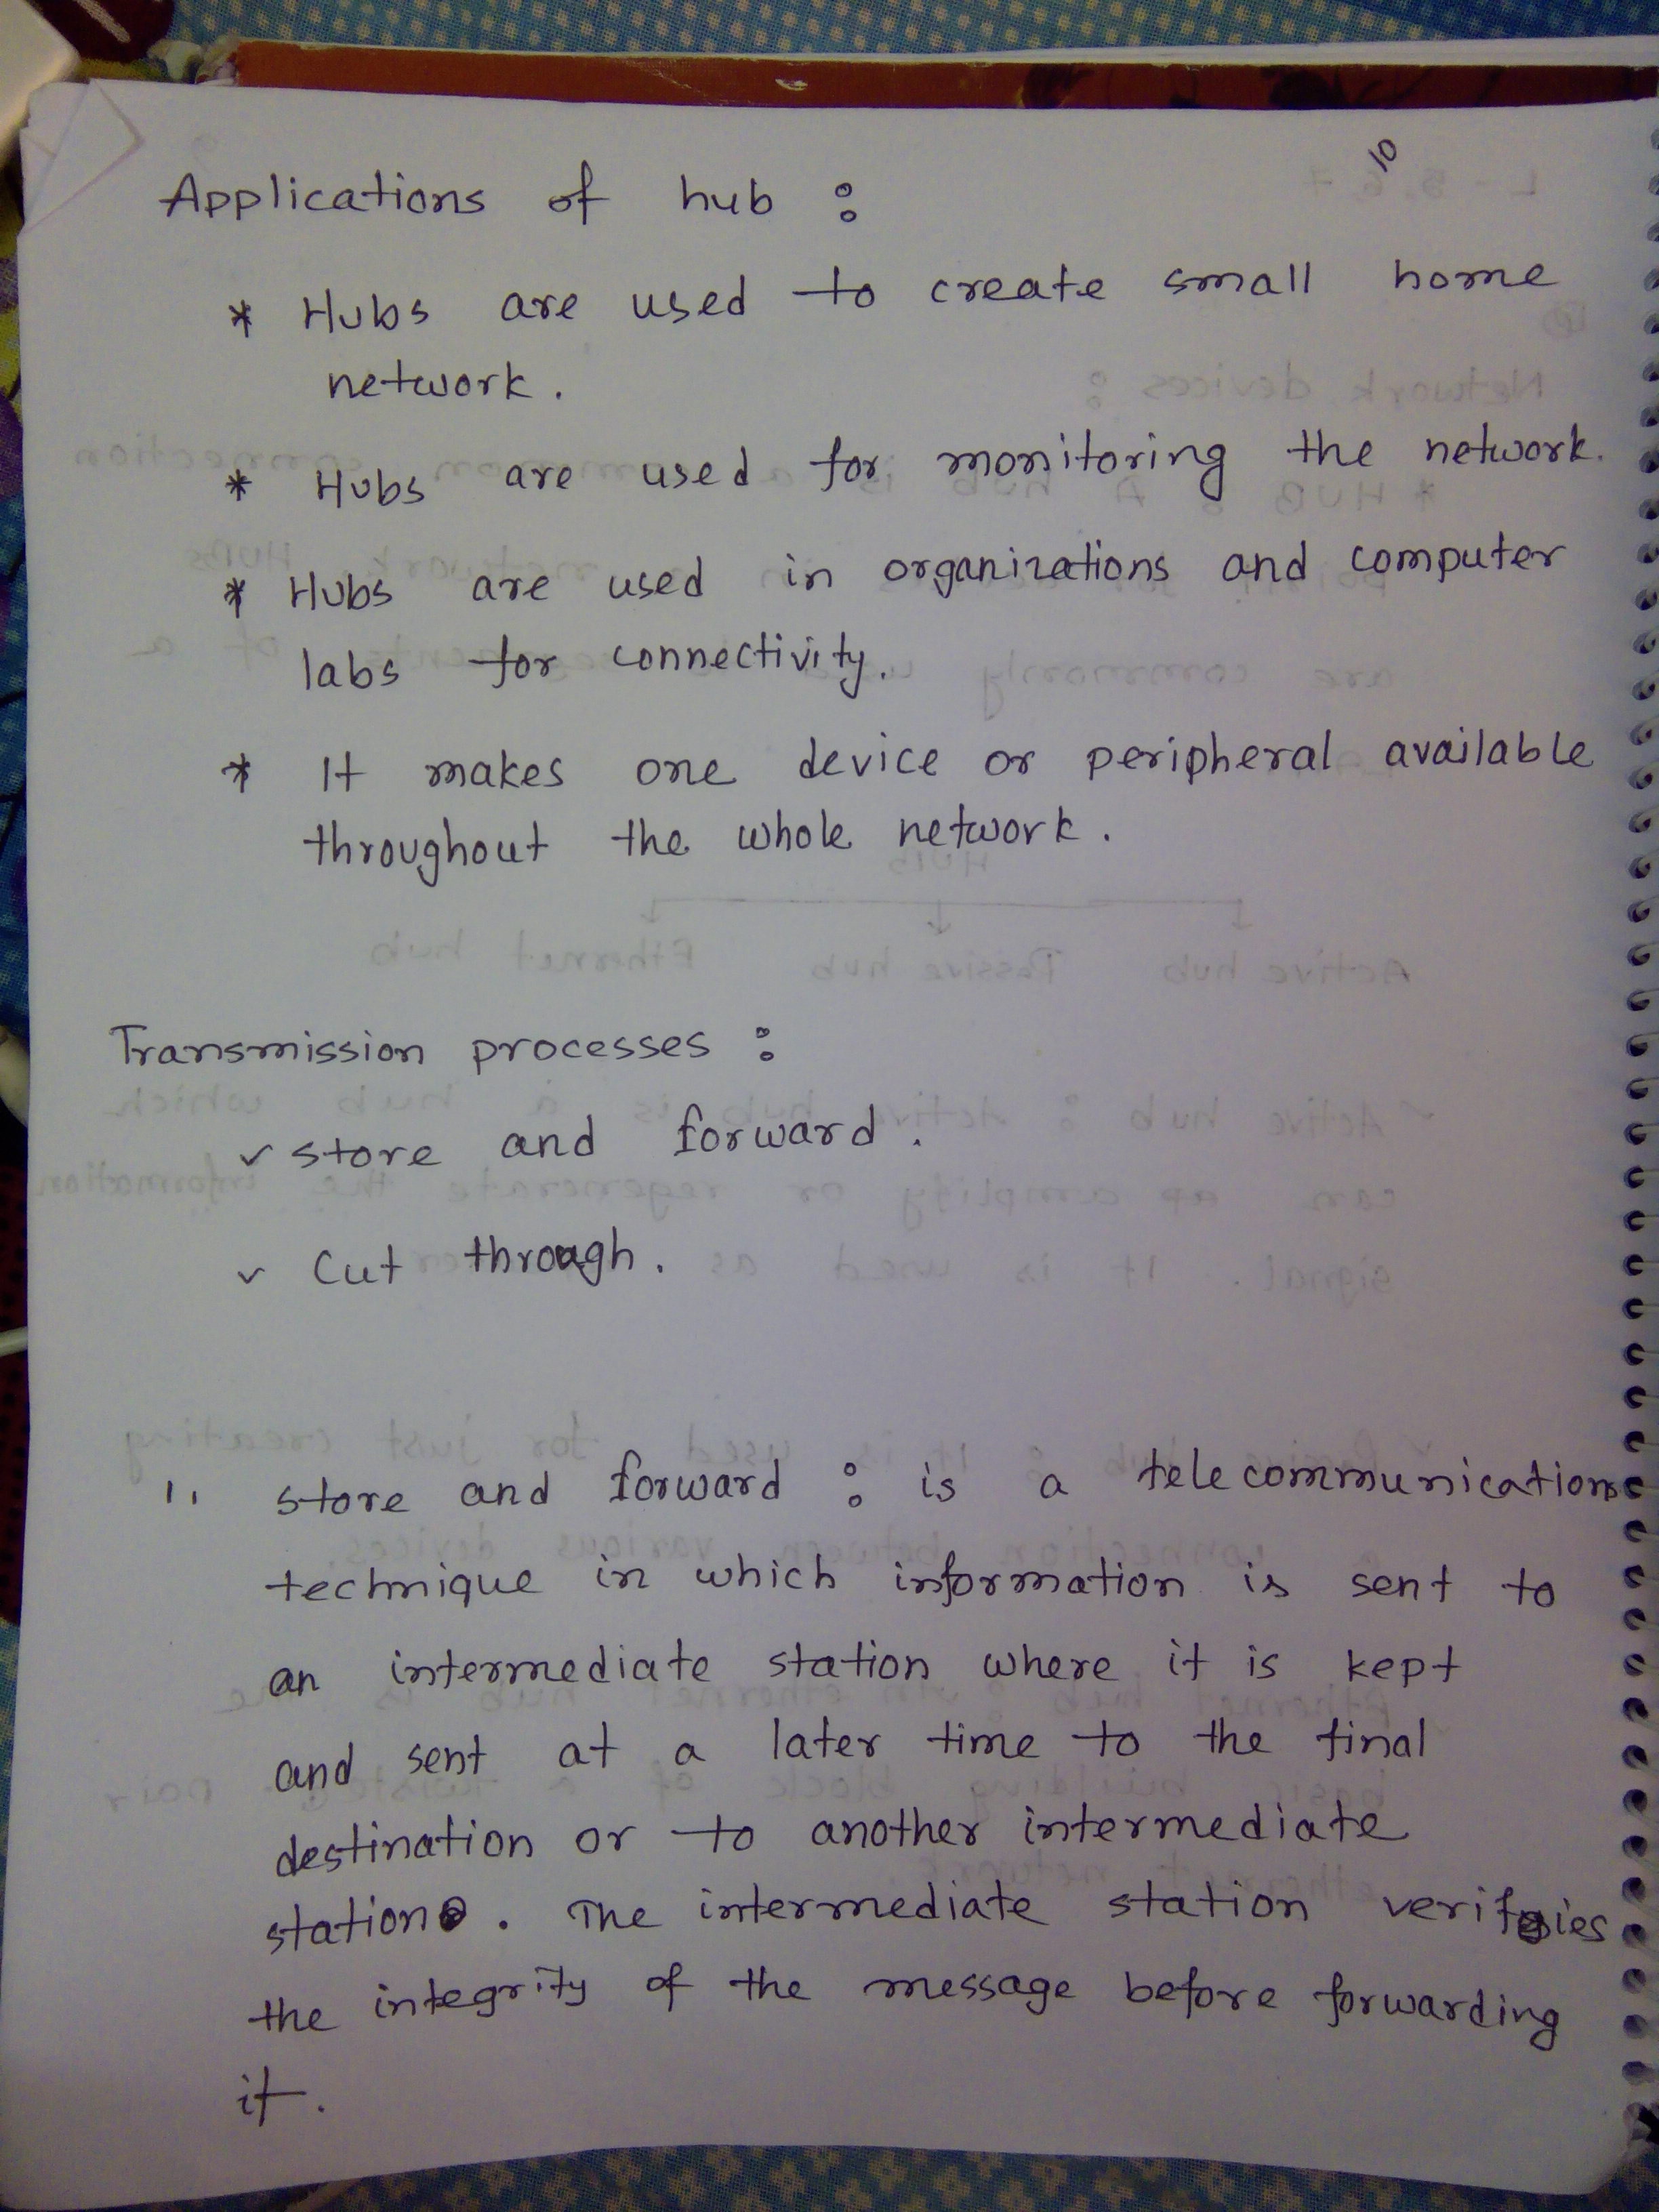 10
Applications of hub :
* Hubs are used to create small home
network.
* Hubs are used for monitoring the network.
* Hubs are used in organizations and computer
labs for connectivity.
* It makes one device or peripheral available
throughout the whole network.
Transmission processes :
✓ store and forward.
✓ Cut through.
1. store and forward : is a telecommunications
technique in which information is sent to
an intermediate station where it is kept
and sent at a later time to the final
destination or to another intermediate
station. The intermediate station verifies
the integrity of the message before forwarding
it.